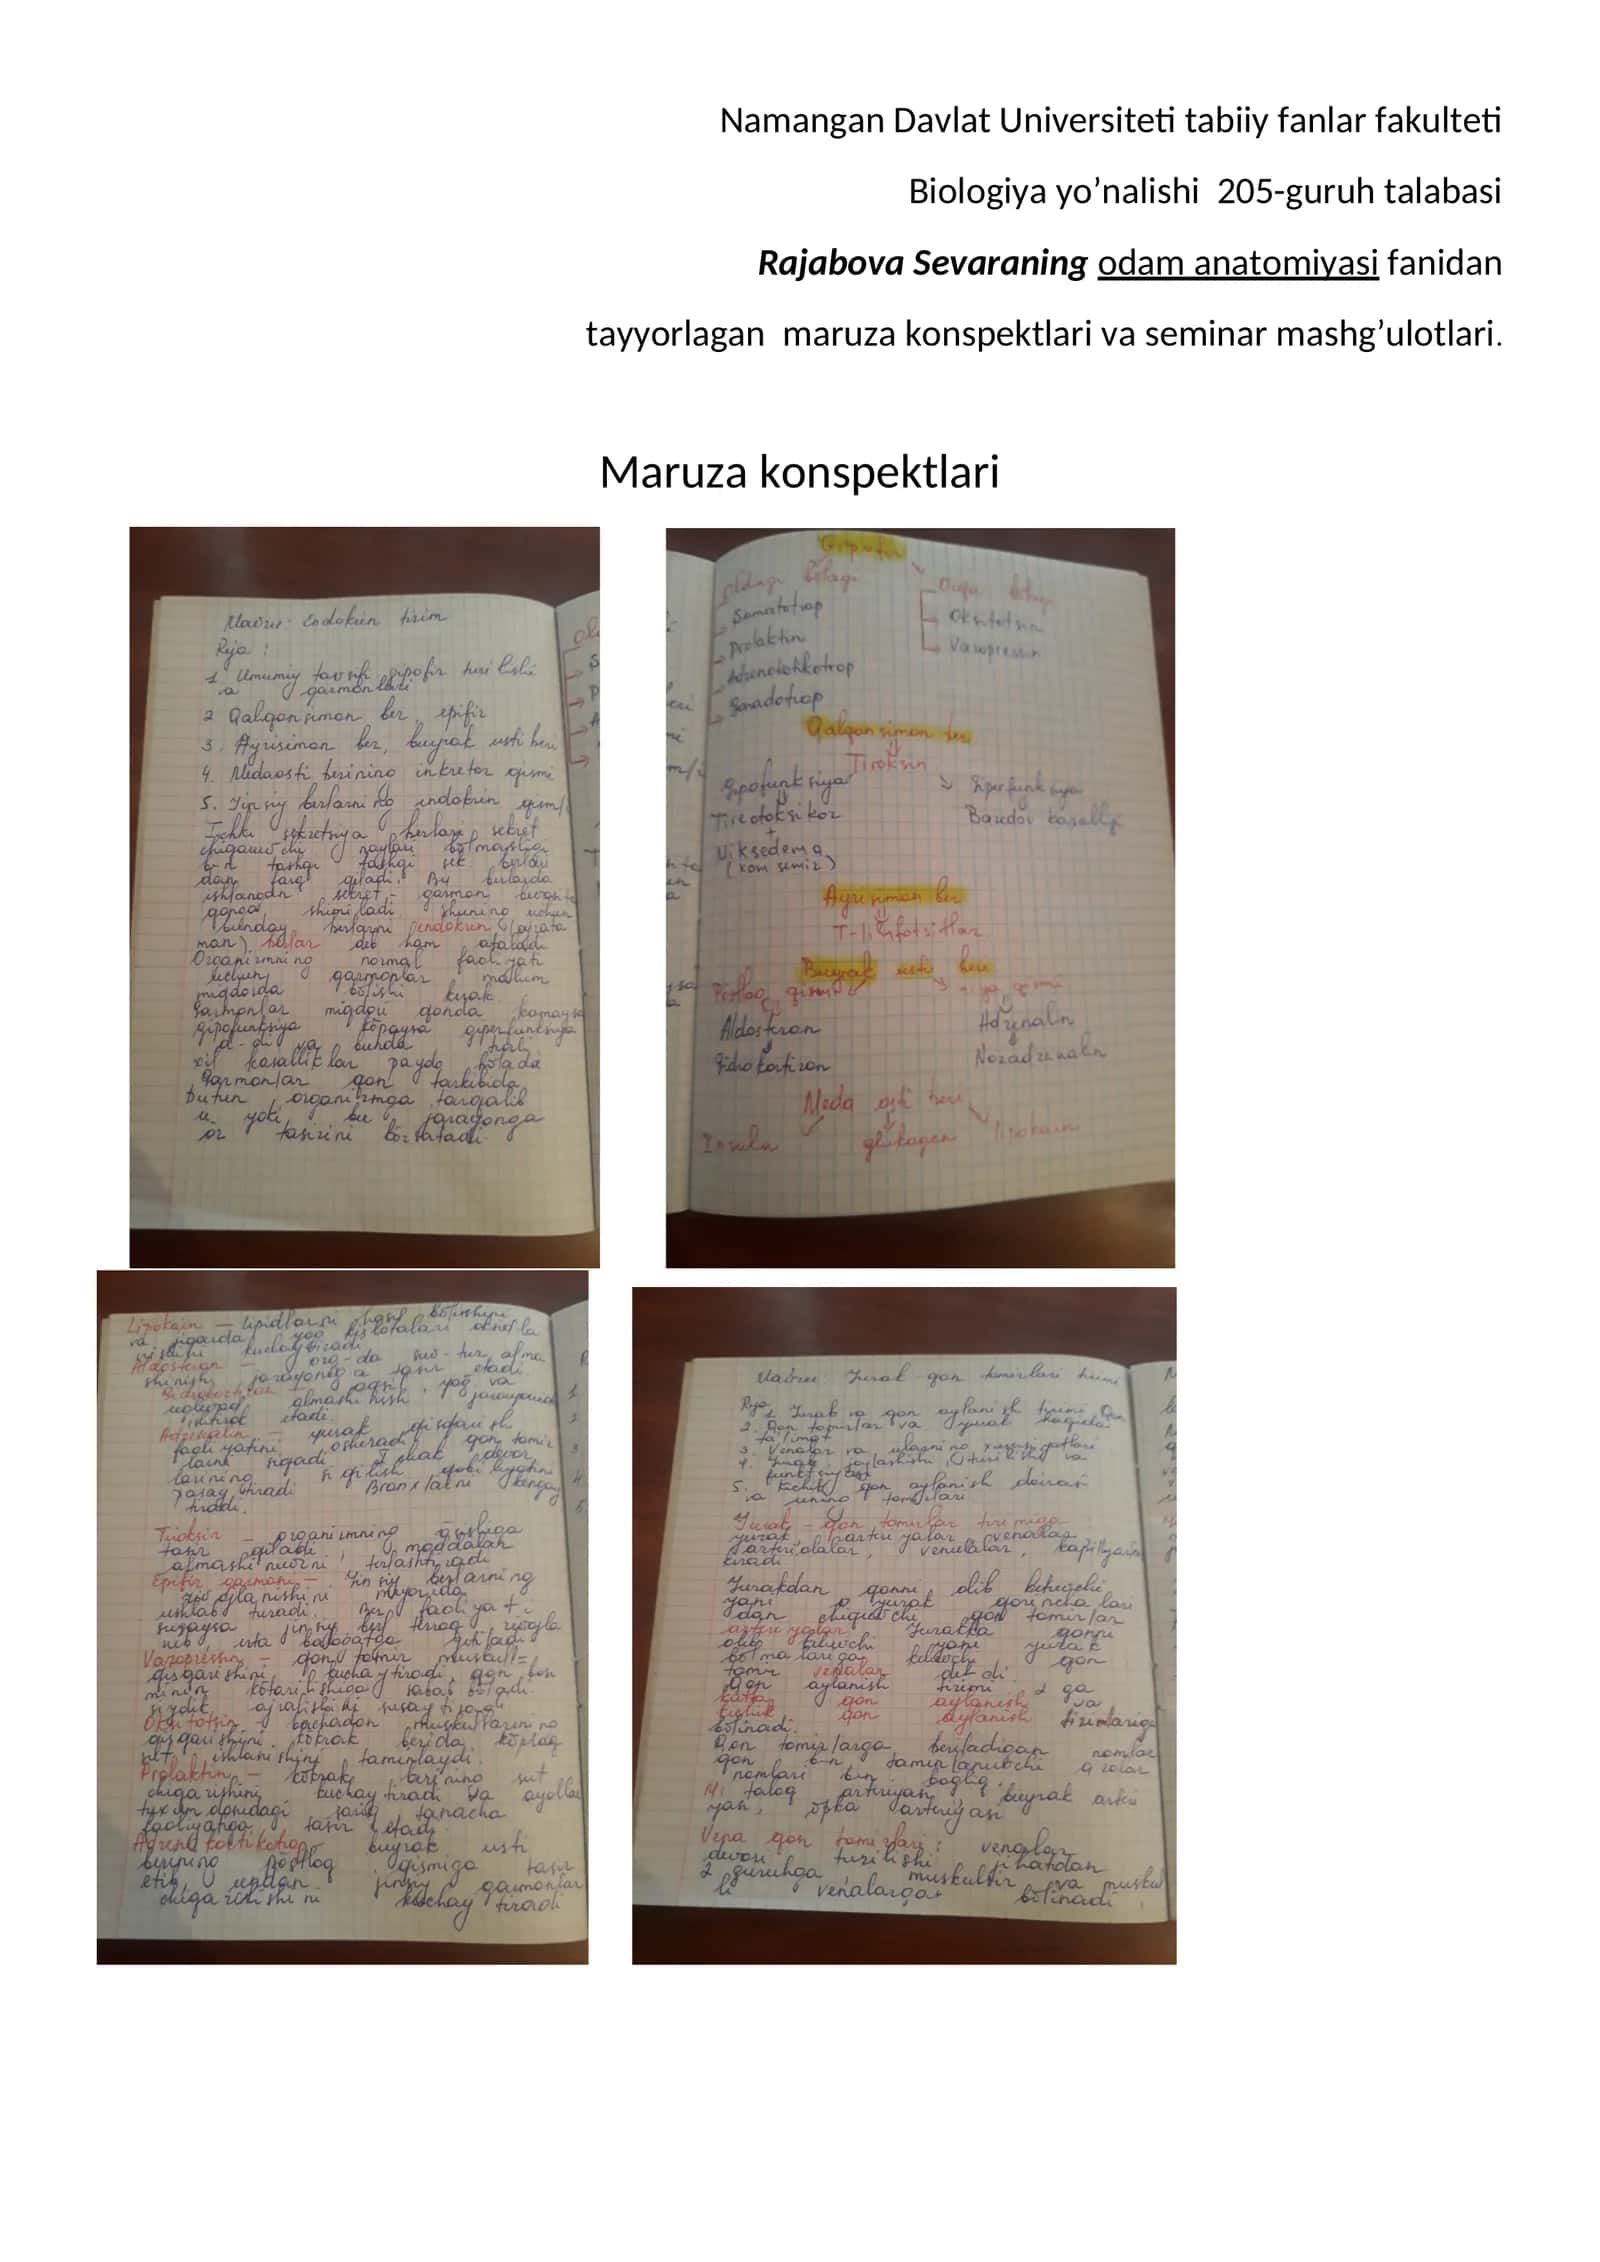 Namangan Davlat Universiteti tabiiy fanlar fakulteti
Biologiya yo’nalishi 205-guruh talabasi
Rajabova Sevaraning odam anatomiyasi fanidan
tayyorlagan maruza konspektlari va seminar mashg’ulotlari.
Maruza konspektlari
Mavzu: Endokren tizim
Reja:
1 Umumiy tavsifi gipofiz tuzilishi
va garmonlari
2 Qalqonsimon bez, epifiz
3. Ayrisimon bez, buyrak usti bezi
4. Medaosti bezining inkretor qismi
5. Jinsiy bezlarning endokrin qismi
Ichki sekretsiya bezlari sekret
chiqaruvchi naylari bo'lmasligi
b-n tashqi sek. bezlar
dan farq qiladi. Bu bezlarda
ishlangan sekret - garmon bevosita
qonga shimiladi shuning uchun
bunday bezlarni endokren
bezlar deb ham ataladi
Organizmning normal faoliyati
uchun garmonlar malum
miqdorda bo'lishi kerak
Garmonlar miqdori qonda kamaysa
gipofunksiya ko'paysa giperfunksiya
va bunda turli
xil kasalliklar paydo bo'ladi
Garmonlar qon tarkibida
butun organizmga tarqalib
u yoki bu
o'z tasirini ko'rsatadi
Gipofiz
oldingi bo'lagi
Somatotrop
Prolaktin
Gonadotrop
Orqa bo'lagi
Oksitotsin
Vazopressin
Qalqonsimon bez
Tiroksin
Gipofunksiya
Tireotoksikoz
+
Miksedema
Giperfunksiya
Bazedov kasalligi
Ayrisimon bez
T-limfotsitlar
Buyrak usti bezi
Po'stloq qismi
Aldosteron
Gidrokortizon
Adrenalin
Noradrenalin
Meda osti bezi
Insulin
glukagon
lipokain
Lipokain – lipidlarni hosil bo'lishini
va jigarda yog' kislotalari
kuchaytiradi
Aldosteron – org-da suv-tuz alma
shinishi jarayoniga tasir etadi
Gidrokortizon – oqsil, yog' va
uglevod almashinish jarayonida
ishtirok etadi.
Adrenalin – yurak qisqarish
faoliyatini oshiradi, qon tomir
larini Ichak devor
larining
pasaytiradi Bronxlarni kengay
tiradi.
Tiroksin – organizmning o'sishiga
tasir qiladi, moddalar
almashinuvini tezlashtiradi
Epifiz garmoni – Jinsiy bezlarning
rivojlanishini meyorida
ushlab turadi. Bez faoliyati
susaysa jinsiy bez tezroq rivojla
nib, erta balog'atga yetiladi
Vazopressin – qon tomir muskul
qisqarishini kuchaytiradi, qon bosi
mining ko'tarilishiga sabab bo'ladi.
siydik ajralishini susaytiradi
Oksitotsin – bachadon muskullarining
qisqarishini, ko'krak bezida ko'proq
sut ishlanishini taminlaydi
Prolaktin – ko'krak bezining sut
chiqarishini kuchaytiradi va ayollar
tuxumdonidagi sariq tanacha
faoliyatiga tasir etadi
Adrenokortikotrop buyrak usti
bezining po'stloq qismiga tasir
etib, undan jinsiy garmonlar
chiqarilishini kuchaytiradi
Mavzu: Yurak qon tomirlari tizimi
Reja
1. Yurak va qon aylanish tizimi
2. Qon tomirlar va yurak haqida
ta'limot
3. Venalar va ularning xususiyatlari
4. Yurak joylashishi, tuzilishi va
funktsiyasi
5. Kichik qon aylanish doirasi
va uning tomirlari
Yurak – qon tomirlar tizimiga
yurak, arteriyalar, venalar
arteriolalar, venulalar, kapillyarlar
kiradi
Yurakdan qonni olib ketuvchi
yani yurak qorinchalari
dan chiquvchi qon tomirlar
arteriyalar Yurakka qonni
olib keluvchi yani yurak
bo'lmalariga keluvchi qon
tomir venalar
Qon aylanish tizimi 2 ga
katta qon aylanish va
kichik qon aylanish tizimlariga
bo'linadi.
Qon tomirlarga beriladigan nomlar
qon b-n taminlanuvchi azolar
nomlari b-n bog'liq.
M: taloq arteriyasi, buyrak arteri
yasi, o'pka arteriyasi
Vena qon tomirlari: venalar
devori tuzilishi jihatdan
2 guruhga muskulsiz va muskul
li venalarga bo'linadi